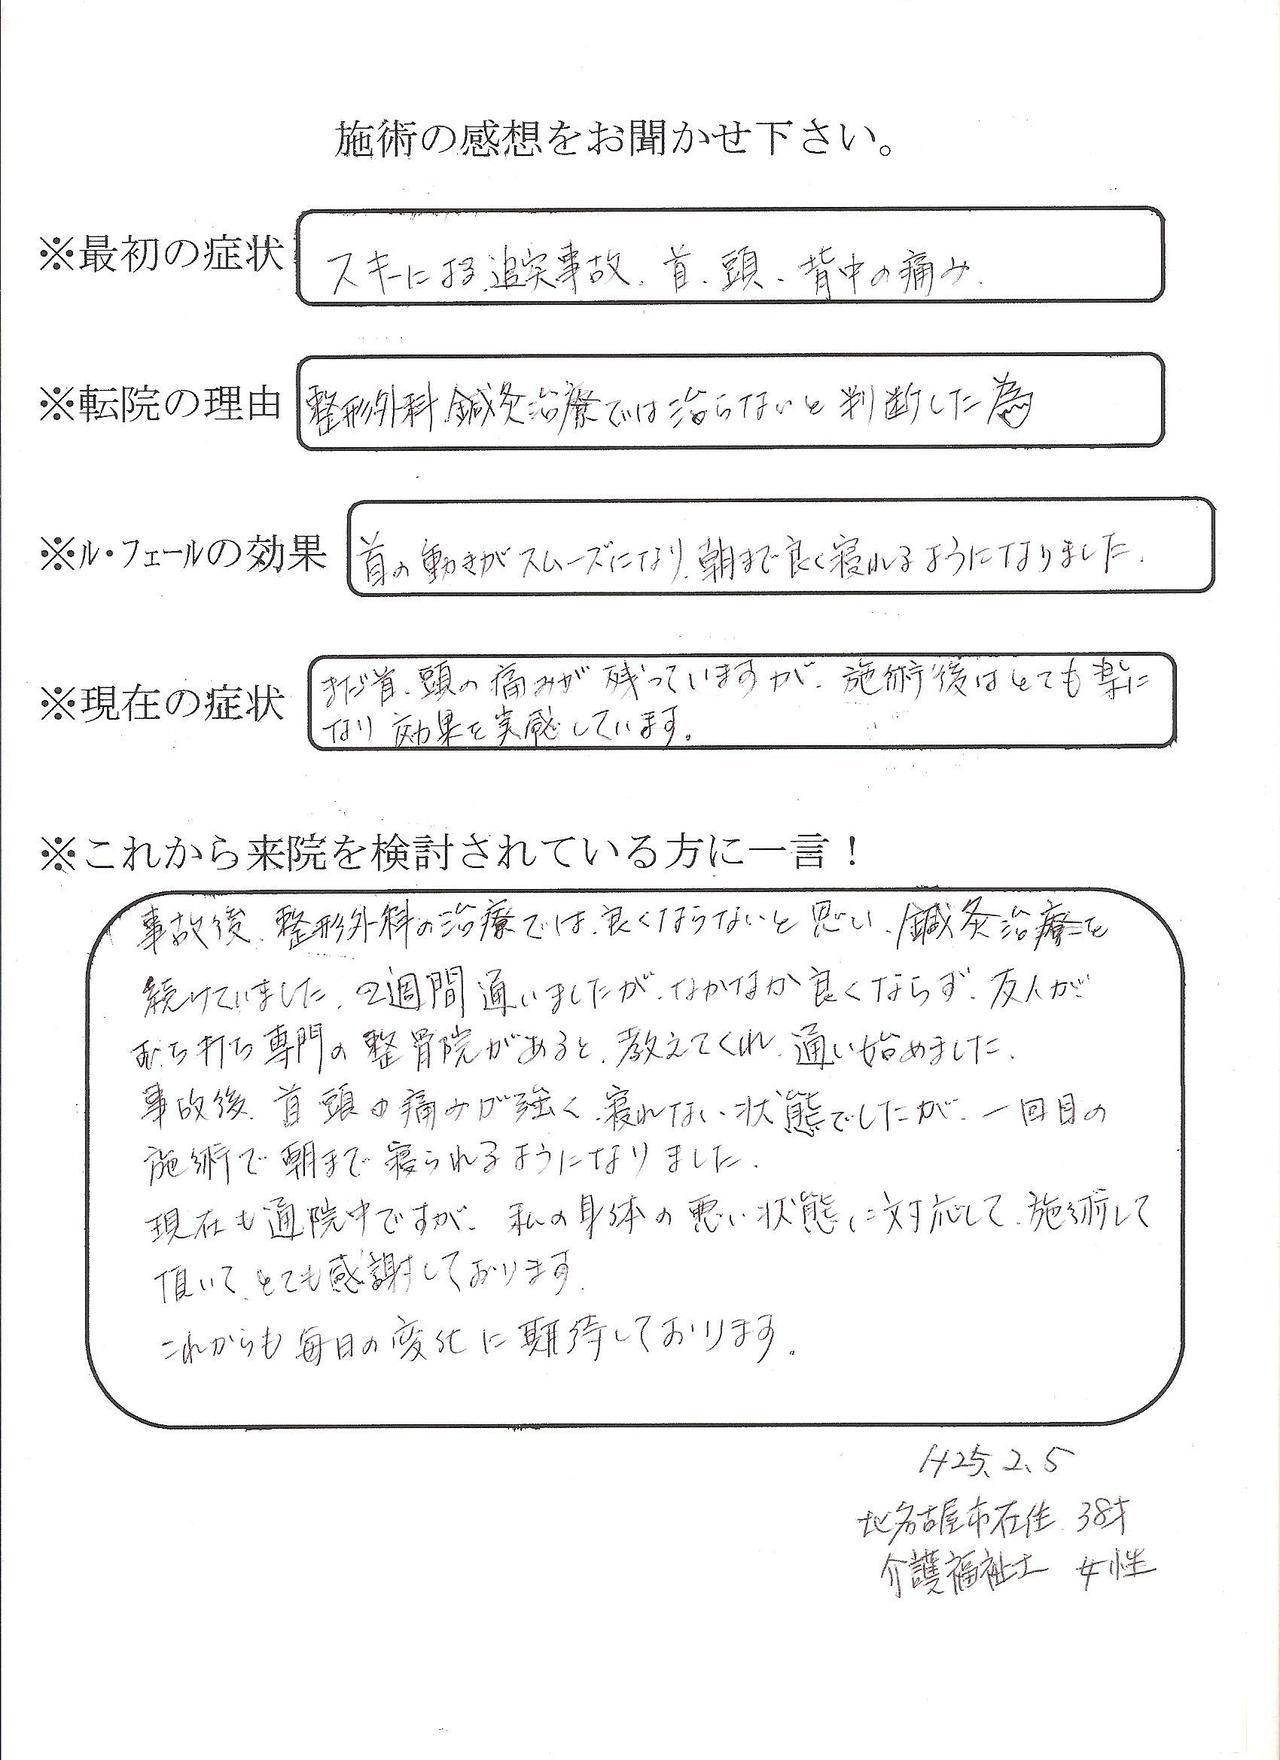 施術の感想をお聞かせ下さい。
※最初の症状
スキーによる追突事故、首、頭、背中の痛み.
※転院の理由
整形外科.鍼灸治療では治らないと判断した為
※ル・フェールの効果
首の動きがスムーズになり、朝まで良く寝れるようになりました.
※現在の症状
まだ首、頭の痛みが残っていますが、施術後はとても楽に
なり効果を実感しています。
※これから来院を検討されている方に一言！
事故後、整形外科の治療では、良くならないと思い、鍼灸治療を
続けていました、2週間通いましたが、なかなか良くならず、友人が
むち打ち専門の整骨院があると、教えてくれ、通い始めました、
事故後、首頭の痛みが強く、寝れない状態でしたが、一回目の
施術で朝まで寝られるようになりました、
現在も通院中ですが、私の身体の悪い状態に対応して、施術して
頂いて、とても感謝しております.
これからも毎日の変化に期待しております。
H25、2、5
名古屋市在住 38才
介護福祉士 女性